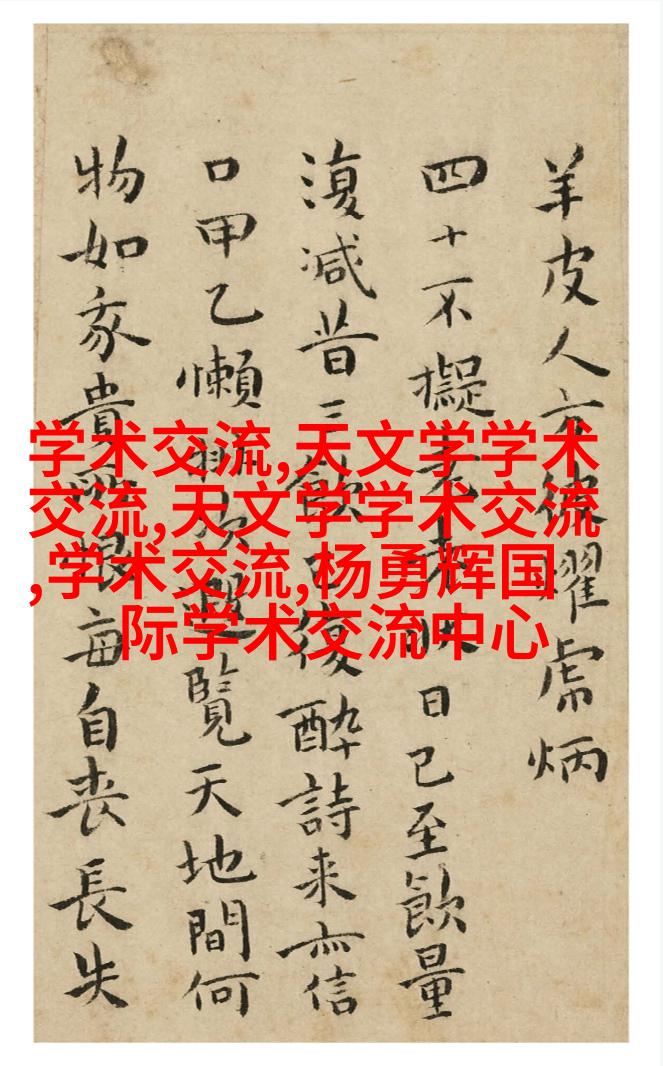 羊皮人方耀炳
四十不擬日已至飲量
復減昔三飲復醉詩来亦信
口甲乙懶覽天地間何
物如豕貴恨每自喪長失
学术交流,天文学学术
交流,天文学学术交流
,学术交流,杨勇辉国
际学术交流中心